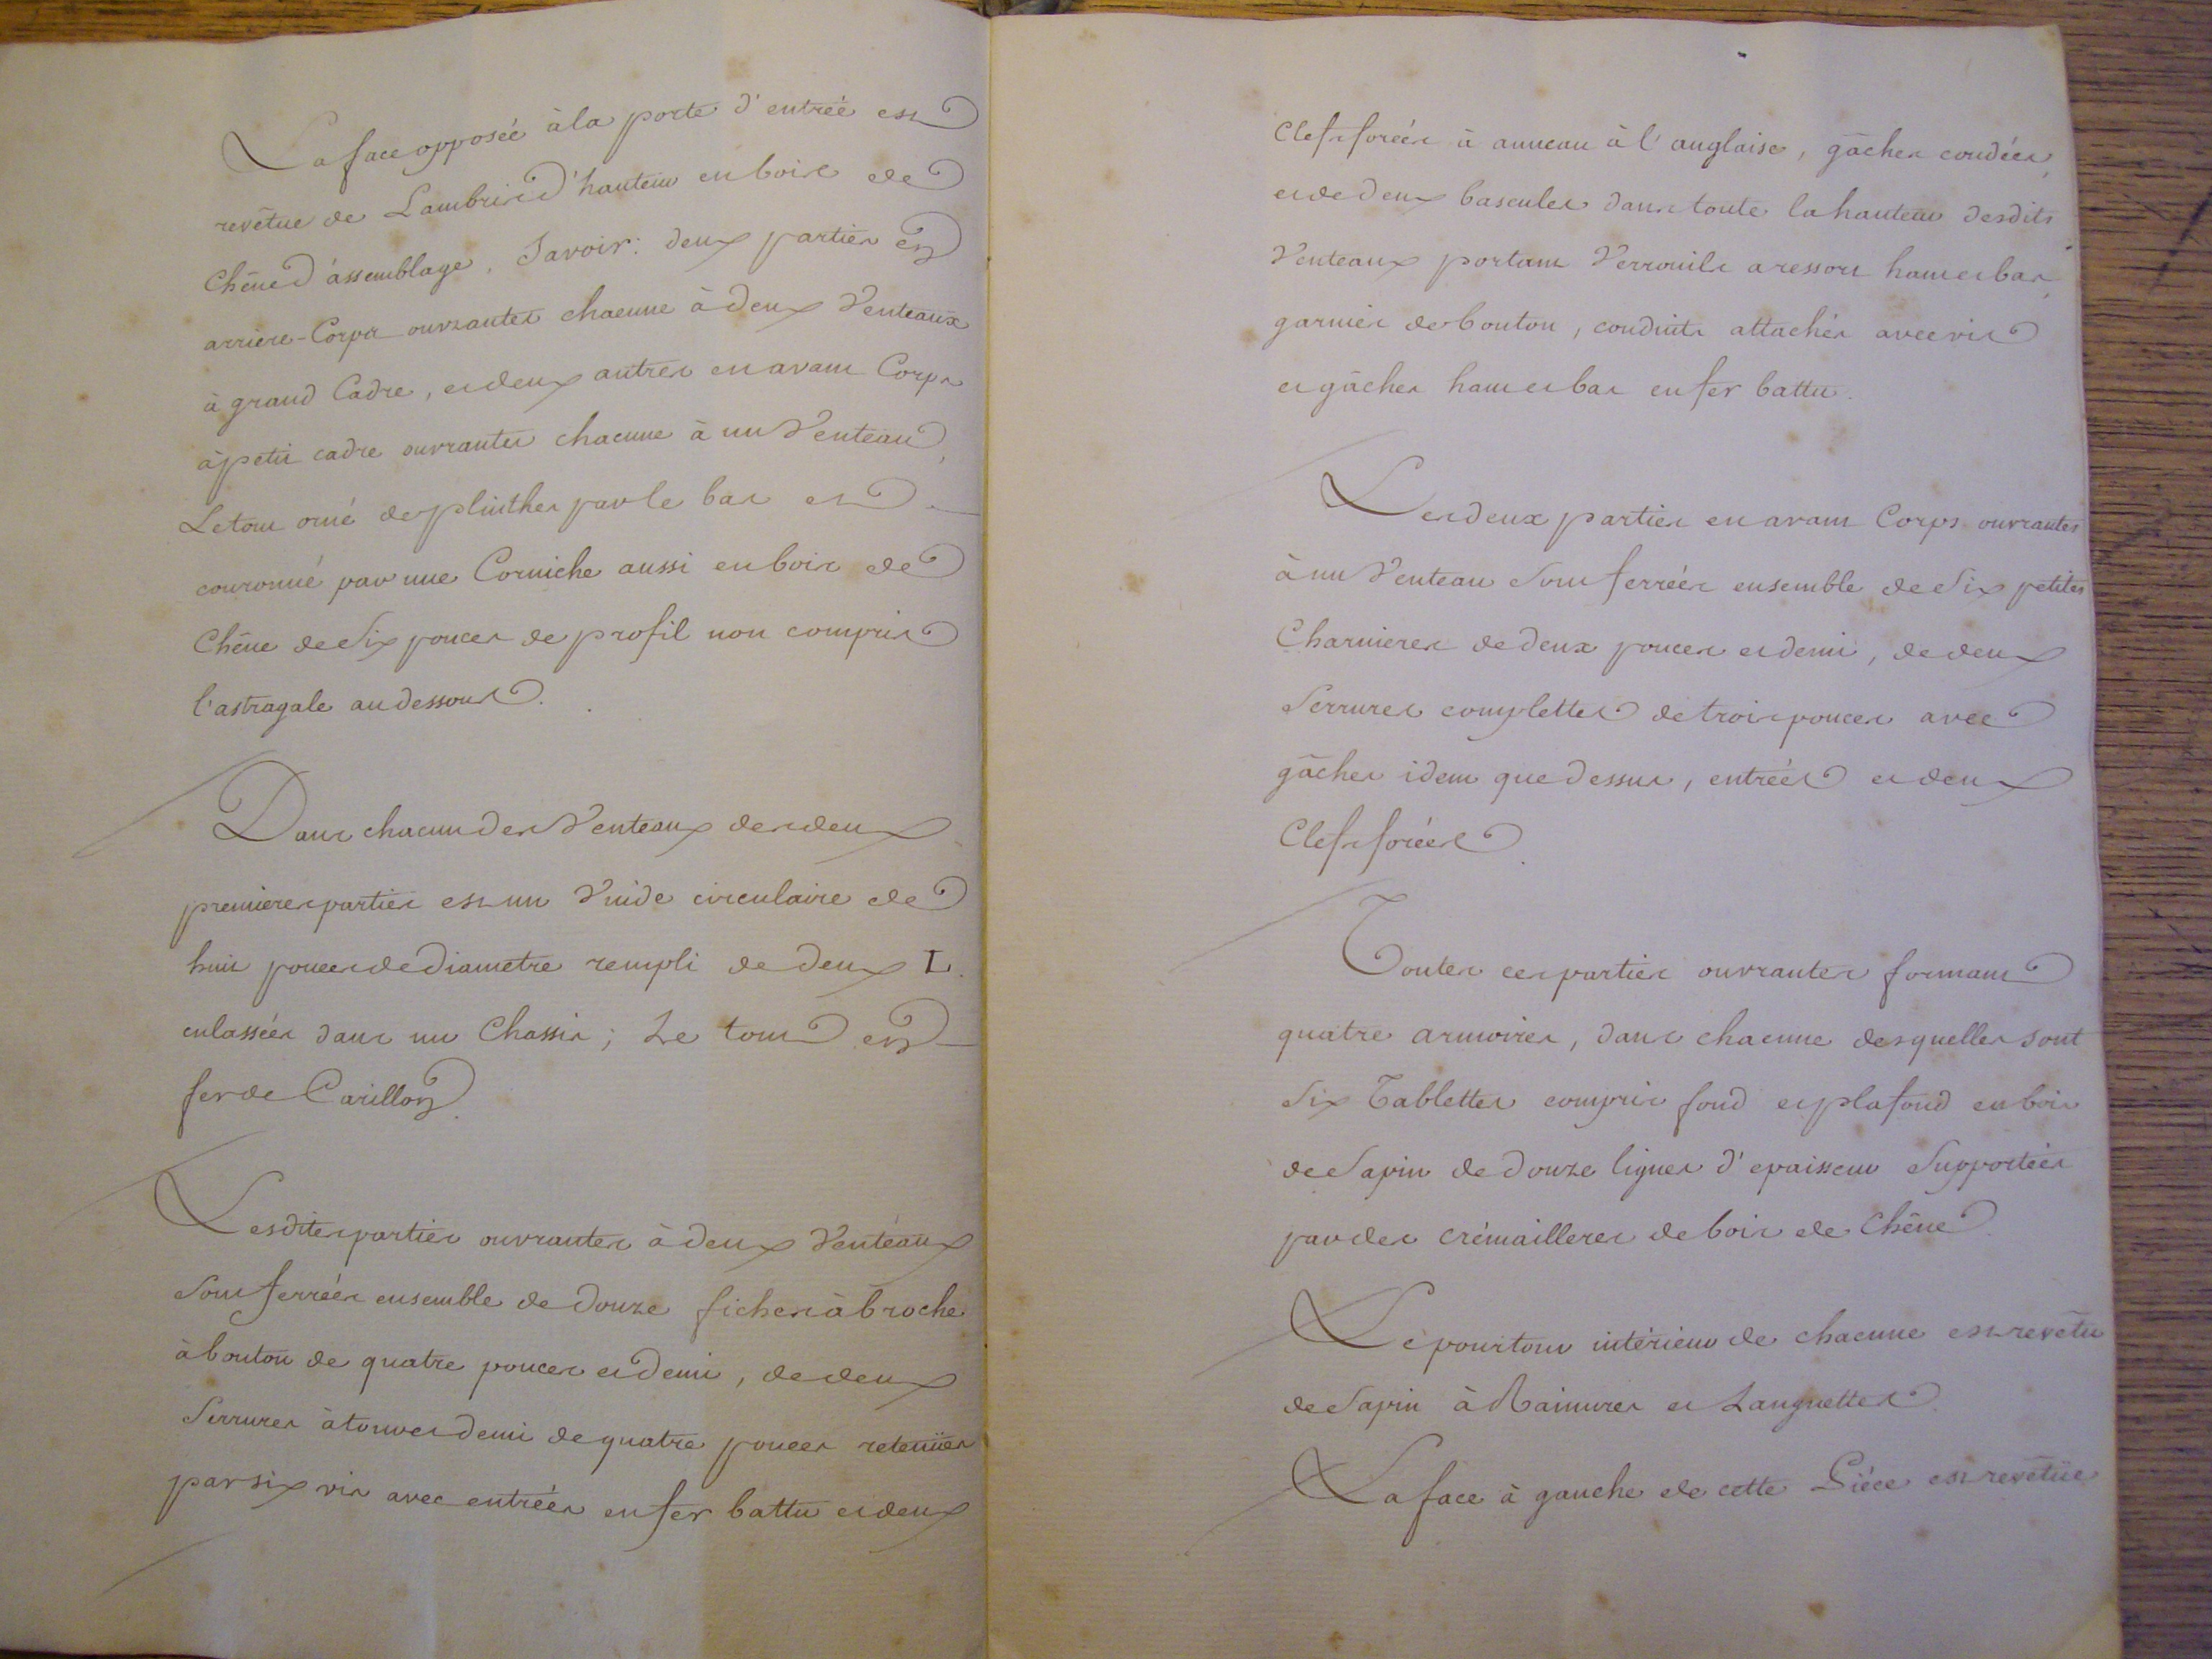 La face opposée à la porte d'entrée est
revêtue de Lambris d'hauteur en bois de
Chêne d'assemblage, Savoir: deux parties en
arriere-Corps ouvrantes chacune à deux Venteaux
à grand Cadre, et deux autres en avant Corps
à petit cadre ouvrantes chacune à un Venteau,
Le tout orné de plinthes par le bas et
couronné par une Corniche aussi en bois de
Chêne de Six pouces de profil non compris
l'astragale au dessous.
Dans chacun des Venteaux des deux
premieres parties est un Vuide circulaire de
huit pouces de diametre rempli de deux L.
enlassées dans un Chassis; Le tout en
fer de Carillon.
Lesdites parties ouvrantes à deux Venteaux
Sont ferrées ensemble de douze fiches à broche
à bouton de quatre pouces et demi, de deux
Serrures à tour et demi de quatre pouces retenües
par six vis avec entrées en fer battu et deux
Clefs forées à anneau à l'anglaise, gâches coudées,
et de deux bascules dans toute la hauteur desdits
Venteaux portant Verrouils a ressort haut et bas,
garnies de bouton, conduits attachés avec vis
et gâches haut et bas en fer battu.
Les deux parties en avant Corps ouvrantes
à un Venteau Sont ferrées ensemble de Six petites
Charnieres de deux pouces et demi, de deux
Serrures complettes de trois pouces avec
gâches idem que dessus, entrées et deux
Clefs forées.
Toutes ces parties ouvrantes formant
quatre armoires, dans chacune desquelles sont
Six Tablettes compris fond et plafond en bois
de Sapin de douze lignes d'epaisseur Supportées
par des crémailleres de bois de Chêne.
Le pourtour intérieur de chacune est revêtu
de Sapin à Rainures et Languettes.
La face à gauche de cette Piéce est revêtüe